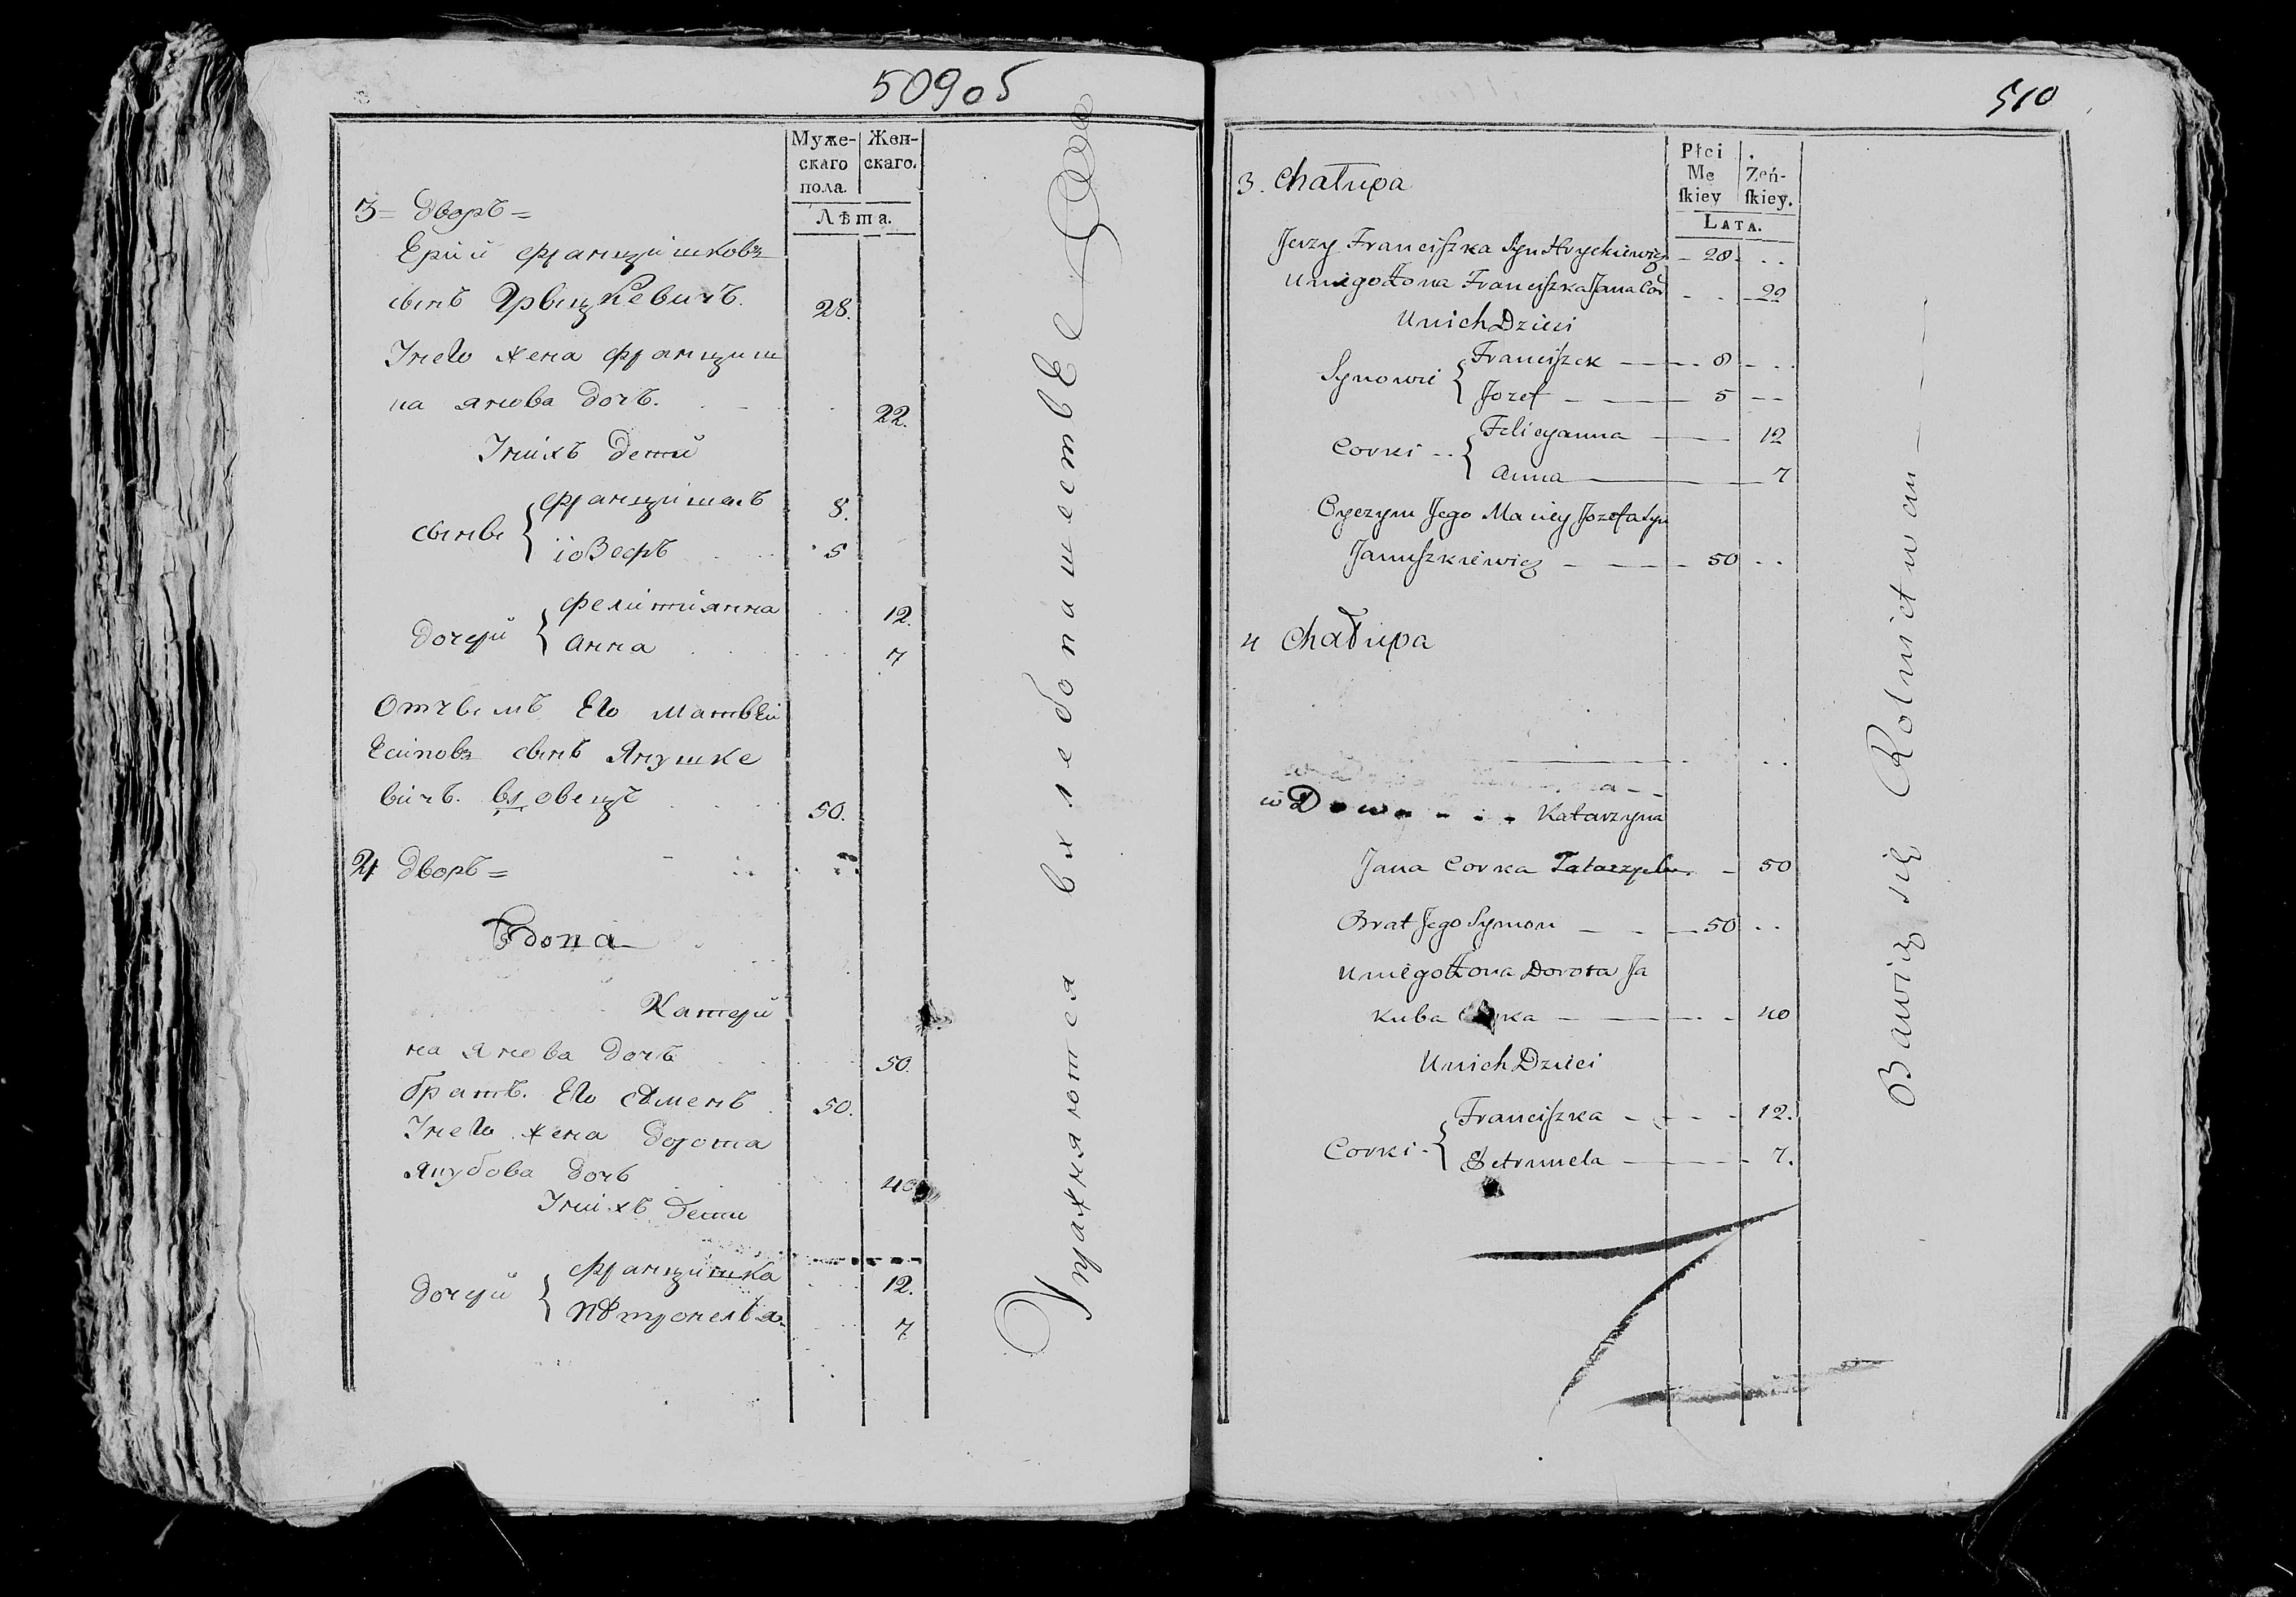 509об
Муже-
скаго
пола.
Жен-
скаго.
Лѣта.
3 = дворъ =
Ерій францишковъ
сынъ Грыцкевичъ. 28.
Унего жена франциш
ка янова дочъ. 22.
Унихъ дети
сынве { францишекъ 8.
іозефъ 5
дочери { фелитиянна 12.
анна 7
Отчымъ Его матвѣй
Есиповъ сынъ Янушке
вичъ. 50.
4 дворъ =
Вдова
Катери
на янова дочъ 50.
братъ Его сѣменъ 50.
Унего жена дорота
якубова дочъ 40
Унихъ дети
дочери { францишка 12.
пѣтронеля 7
Упражняются в хлебопашествЕ
510
Płci
Mę
ſkiey
Żeń-
ſkiey.
LATA.
3. Chałupa
Jerzy Franciszka Syn Hryckiewicz 28
U niego Żona Franciszka Jana Cor 22
U nich Dzieci
Synowie { Franciszek 8
Jozef 5
Corki { Felicyanna 12
Anna 7
Oyczym Jego Maciey Jozefa Syn
Januszkiewicz 50
4 Chałupa
Katarzyna
Jana Corka 50
Brat Jego Symon 50
U niego Żona Dorota Ja
kuba Corka 40
U nich Dzieci
Corki { Franciszka 12.
Petrunela 7.
Bawią się Rolnictwem